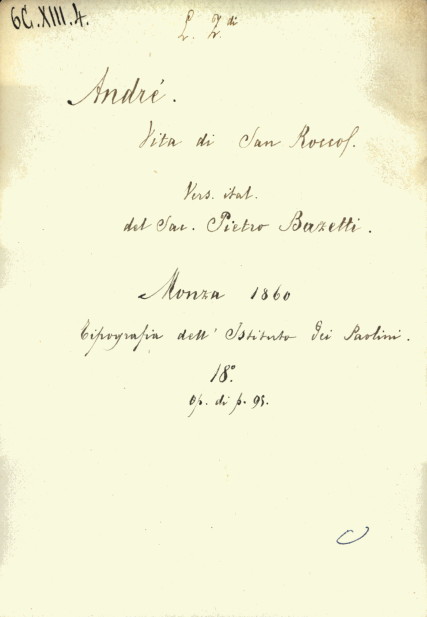 6C.XIII.4.
L. Z.di
André.
Vita di San Rocco.
Vers. ital.
del Sac. Pietro Bazetti.
Monza 1860
Tipografia dell' Istituto dei Paolini.
18°.
Op. di p. 95.